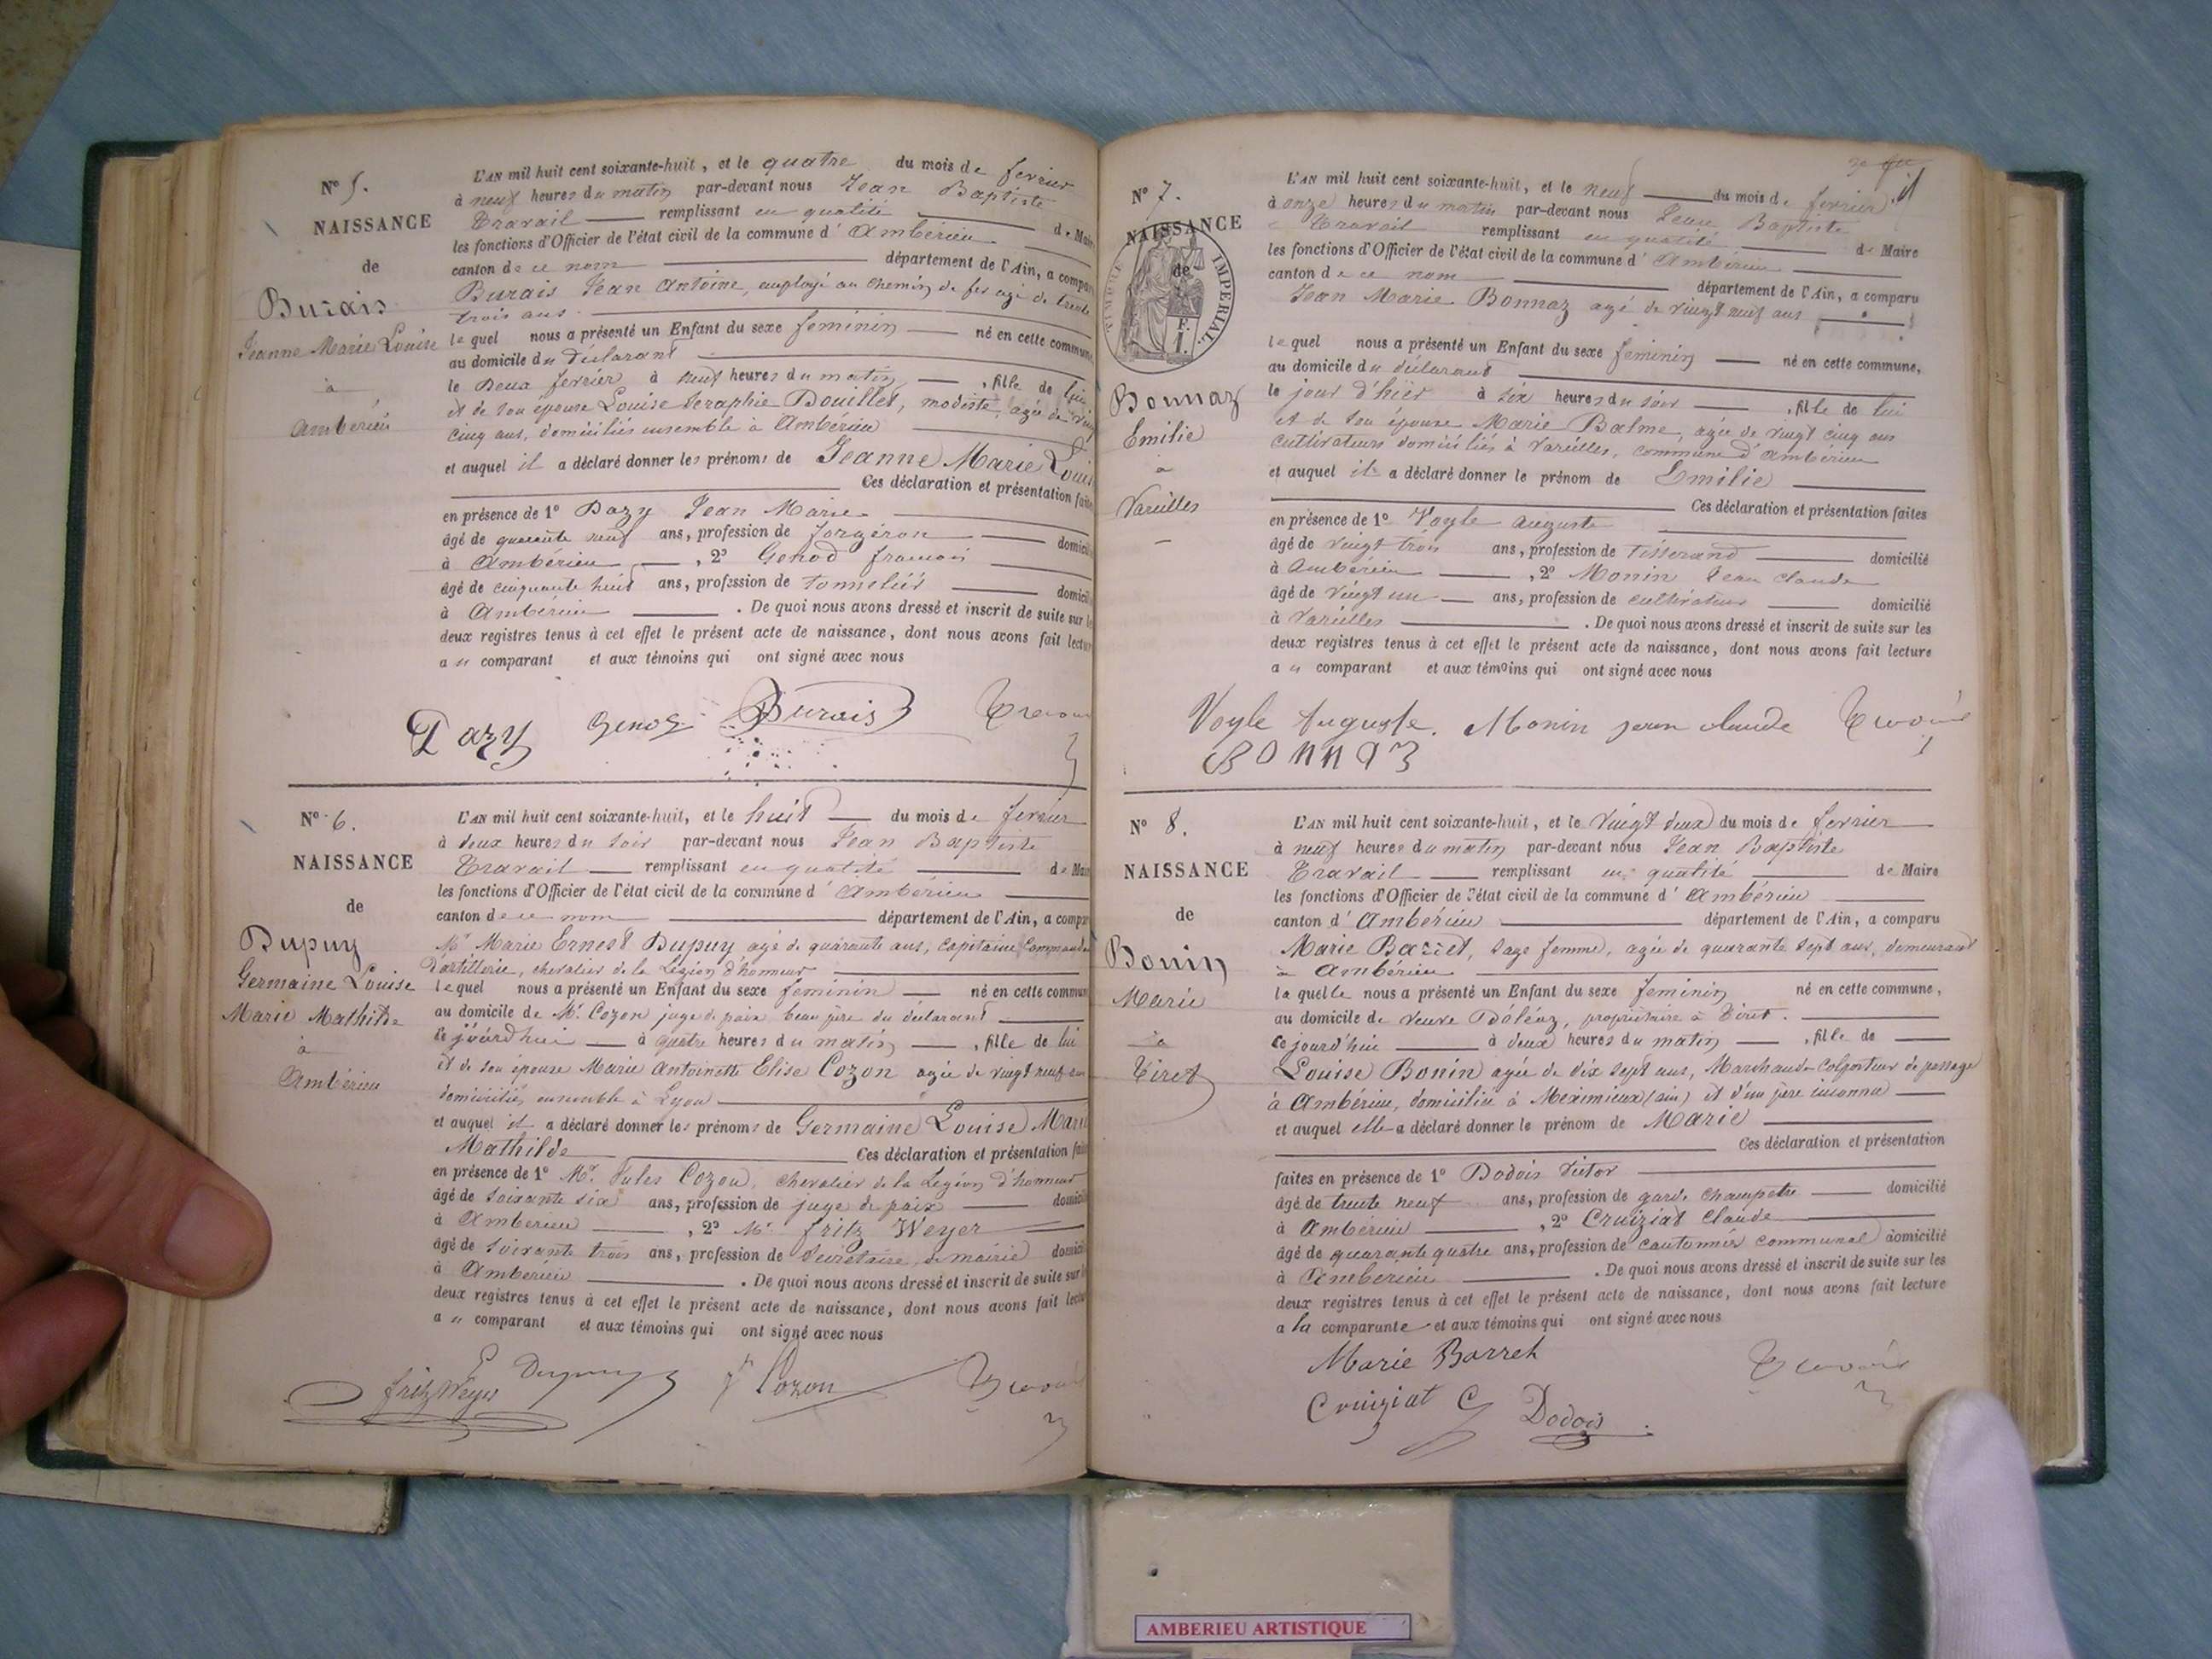 N° 5.
NAISSANCE
de
Burais
Jeanne Marie Louise
à
Ambérieu
L'AN mil huit cent soixante-huit, et le quatre du mois de fevrier
à neuf heures du matin par-devant nous Jean Baptiste
Travail remplissant en qualité de Maire
les fonctions d'Officier de l'état civil de la commune d'Ambérieu
canton de ce nom département de l'Ain, a comparu
Burais Jean Antoine, employé au chemin de fer agé de trente
trois ans
lequel nous a présenté un Enfant du sexe feminin né en cette commune,
au domicile du déclarant
le Deux fevrier à neuf heures du matin, fille de lui
et de son épouse Louise Seraphie Bouillet, modiste, agée de vingt
cinq ans, domiciliés ensemble à Ambérieu
et auquel il a déclaré donner les prénoms de Jeanne Marie Louise
Ces déclaration et présentation faites
en présence de 1° Dazy Jean Marie
âgé de quarante neuf ans, profession de forgeron domicilié
à Ambérieu, 2° Genod francois
âgé de cinquante huit ans, profession de tonnelier domicilié
à Ambérieu. De quoi nous avons dressé et inscrit de suite sur les
deux registres tenus à cet effet le présent acte de naissance, dont nous avons fait lecture
au comparant et aux témoins qui ont signé avec nous
Dazy Genod Burais
N° 6.
NAISSANCE
de
Dupuy
Germaine Louise
Marie Mathilde
à
Ambérieu
L'AN mil huit cent soixante-huit, et le huit du mois de fevrier
à deux heures du soir par-devant nous Jean Baptiste
Travail remplissant en qualité de Maire
les fonctions d'Officier de l'état civil de la commune d'Ambérieu
canton de ce nom département de l'Ain, a comparu
Mr Marie Ernest Dupuy agé de quarante ans, capitaine Commandant
d'artillerie, chevalier de la Légion d'honneur
lequel nous a présenté un Enfant du sexe feminin né en cette commune
au domicile de Mr. Cozon juge de paix beau père du déclarant
ce jourd'hui à quatre heures du matin, fille de lui
et de son épouse Marie Antoinette Elise Cozon agée de vingt neuf ans
domiciliés ensemble à Lyon
et auquel il a déclaré donner les prénoms de Germaine Louise Marie
Mathilde Ces déclaration et présentation faites
en présence de 1° Mr. Jules Cozon, chevalier de la Légion d'honneur
âgé de soixante six ans, profession de juge de paix domicilié
à Ambérieu, 2° Mr. fritz Weyer
âgé de soixante trois ans, profession de Secrétaire de mairie domicilié
à Ambérieu. De quoi nous avons dressé et inscrit de suite sur les
deux registres tenus à cet effet le présent acte de naissance, dont nous avons fait lecture
au comparant et aux témoins qui ont signé avec nous
fritz Weyer E Dupuy Jes Cozon
N° 7.
NAISSANCE
de
TIMBRE IMPERIAL
Bonnaz
Emilie
à
Vareilles
L'AN mil huit cent soixante-huit, et le neuf du mois de fevrier
à onze heures du matin par-devant nous Jean Baptiste
Travail remplissant en qualité de Maire
les fonctions d'Officier de l'état civil de la commune d'Ambérieu
canton de ce nom département de l'Ain, a comparu
Jean Marie Bonnaz agé de vingt neuf ans
lequel nous a présenté un Enfant du sexe feminin né en cette commune,
au domicile du déclarant
le jour d'hier à six heures du soir, fille de lui
et de son épouse Marie Balme, agée de vingt cinq ans
cultivateurs domiciliés à Vareilles, commune d'Ambérieu
et auquel il a déclaré donner le prénom de Emilie
Ces déclaration et présentation faites
en présence de 1° Voyle Auguste
âgé de vingt trois ans, profession de tisserand domicilié
à Ambérieu, 2° Monin Jean Claude
âgé de vingt un ans, profession de cultivateur domicilié
à Vareilles. De quoi nous avons dressé et inscrit de suite sur les
deux registres tenus à cet effet le présent acte de naissance, dont nous avons fait lecture
au comparant et aux témoins qui ont signé avec nous
Voyle Auguste. Monin jean claude
BONNAZ
N° 8.
NAISSANCE
de
Bonin
Marie
à
Tiret
L'AN mil huit cent soixante-huit, et le vingt deux du mois de fevrier
à neuf heures du matin par-devant nous Jean Baptiste
Travail remplissant en qualité de Maire
les fonctions d'Officier de l'état civil de la commune d'Ambérieu
canton d'Ambérieu département de l'Ain, a comparu
Marie Barret, sage femme, agée de quarante sept ans, demeurant
à Ambérieu
laquelle nous a présenté un Enfant du sexe feminin né en cette commune,
au domicile de veuve propriétaire à Tiret.
ce jourd'hui à deux heures du matin, fille de
Louise Bonin agée de dix sept ans, Marchande Colporteur de passage
à Ambérieu, domiciliée à Meximieux (ain) et d'un père inconnu
et auquel elle a déclaré donner le prénom de Marie
Ces déclaration et présentation
faites en présence de 1° Dodois Victor
âgé de trente neuf ans, profession de garde champetre domicilié
à Ambérieu, 2° Cruiziat Claude
âgé de quarante quatre ans, profession de cantonnier communal domicilié
à Ambérieu. De quoi nous avons dressé et inscrit de suite sur les
deux registres tenus à cet effet le présent acte de naissance, dont nous avons fait lecture
a la comparante et aux témoins qui ont signé avec nous
Marie Barret
Cruiziat C Dodois
AMBERIEU ARTISTIQUE